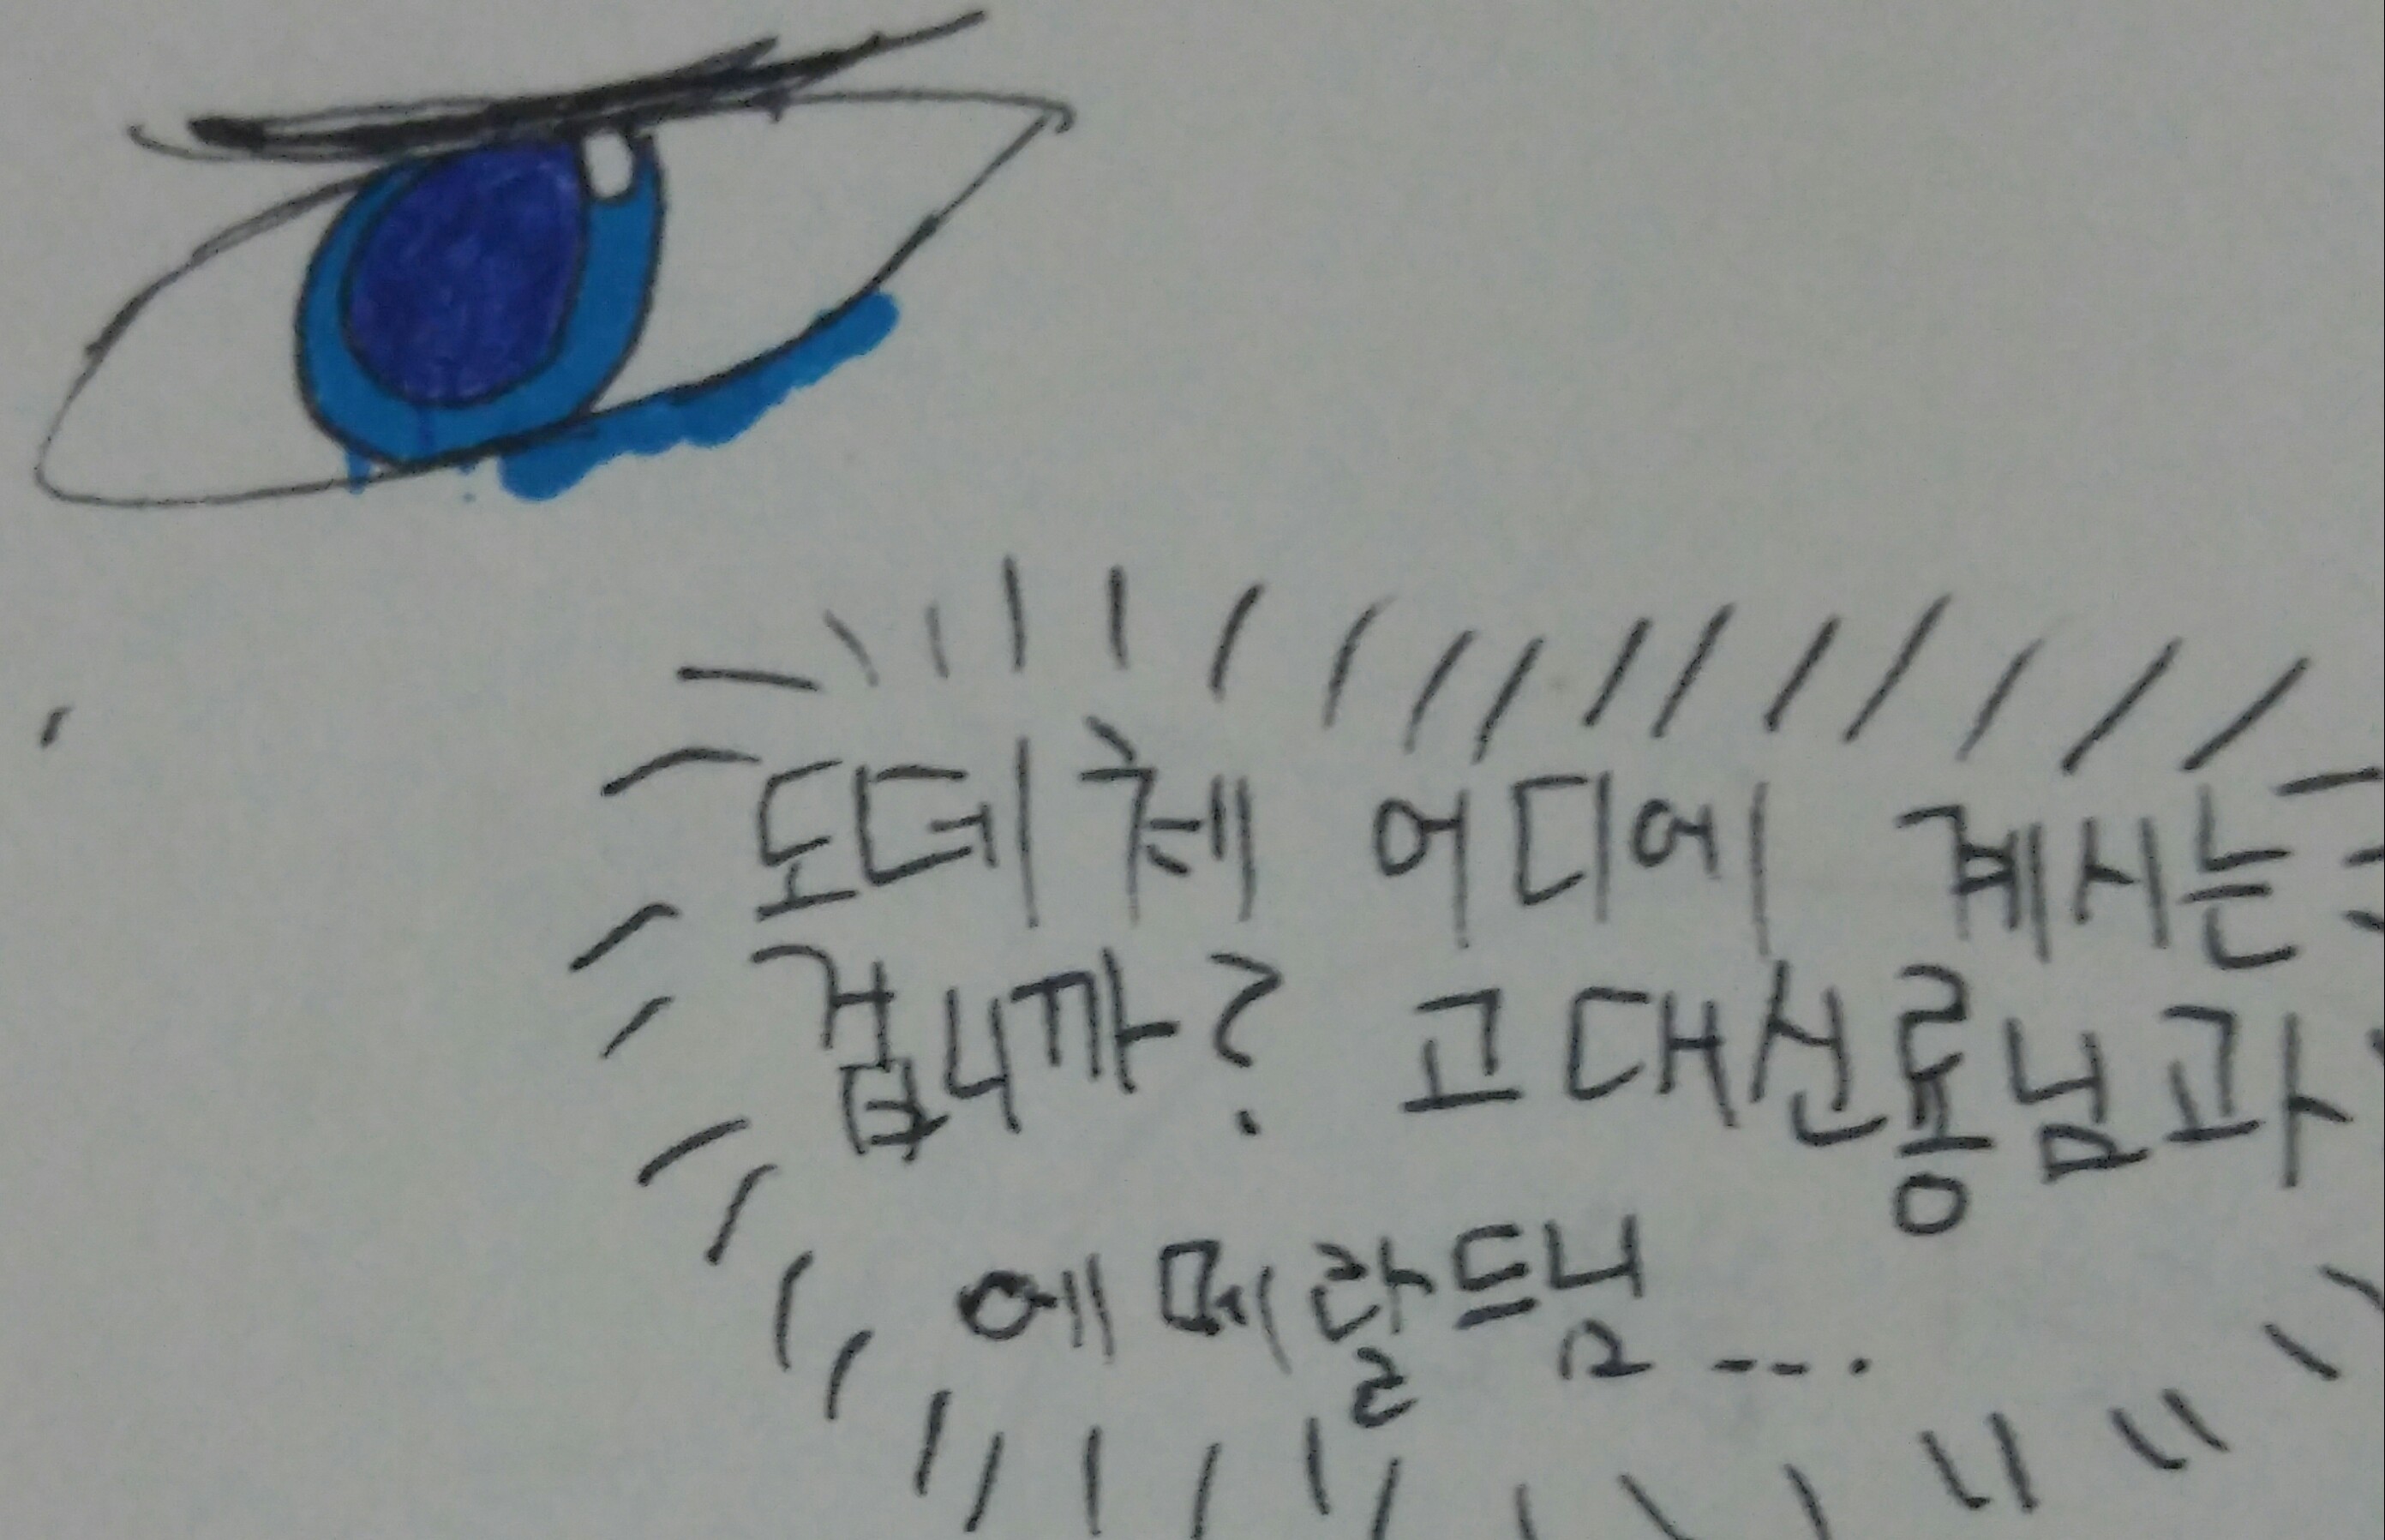 도데체 어디에 계시는
겁니까? 고대신룡님과
에메랄드님...